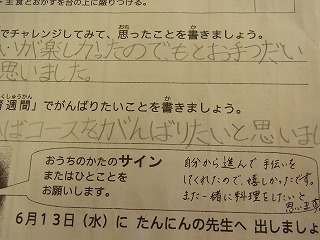 主食とおかずを台の上に盛りつける。
でチャレンジしてみて、思ったことを書きましょう。
いが楽しかったのでもとおてつだい
思いました。
週間」でがんばりたいことを書きましょう。
ばコースをがんばりたいと思いまし
おうちのかたのサイン
またはひとことを
お願いします。
自分から進んで手伝いを
してくれたので、嬉しかったです。
また一緒に料理をしたいと
思います。
6月13日(水)に たんにんの先生へ 出しましょ